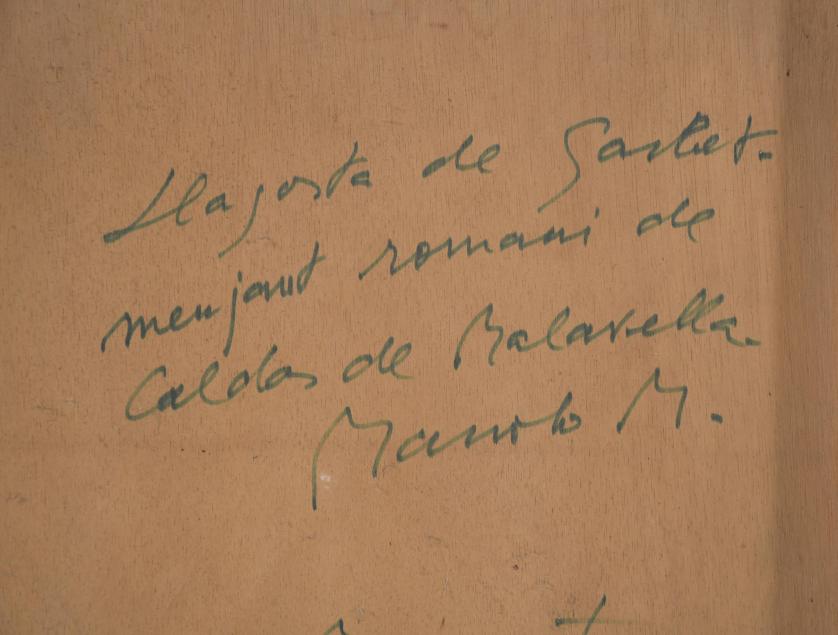 Llagosta de Garbet.
menjant romani de
Caldas de Malavella.
Manolo M.